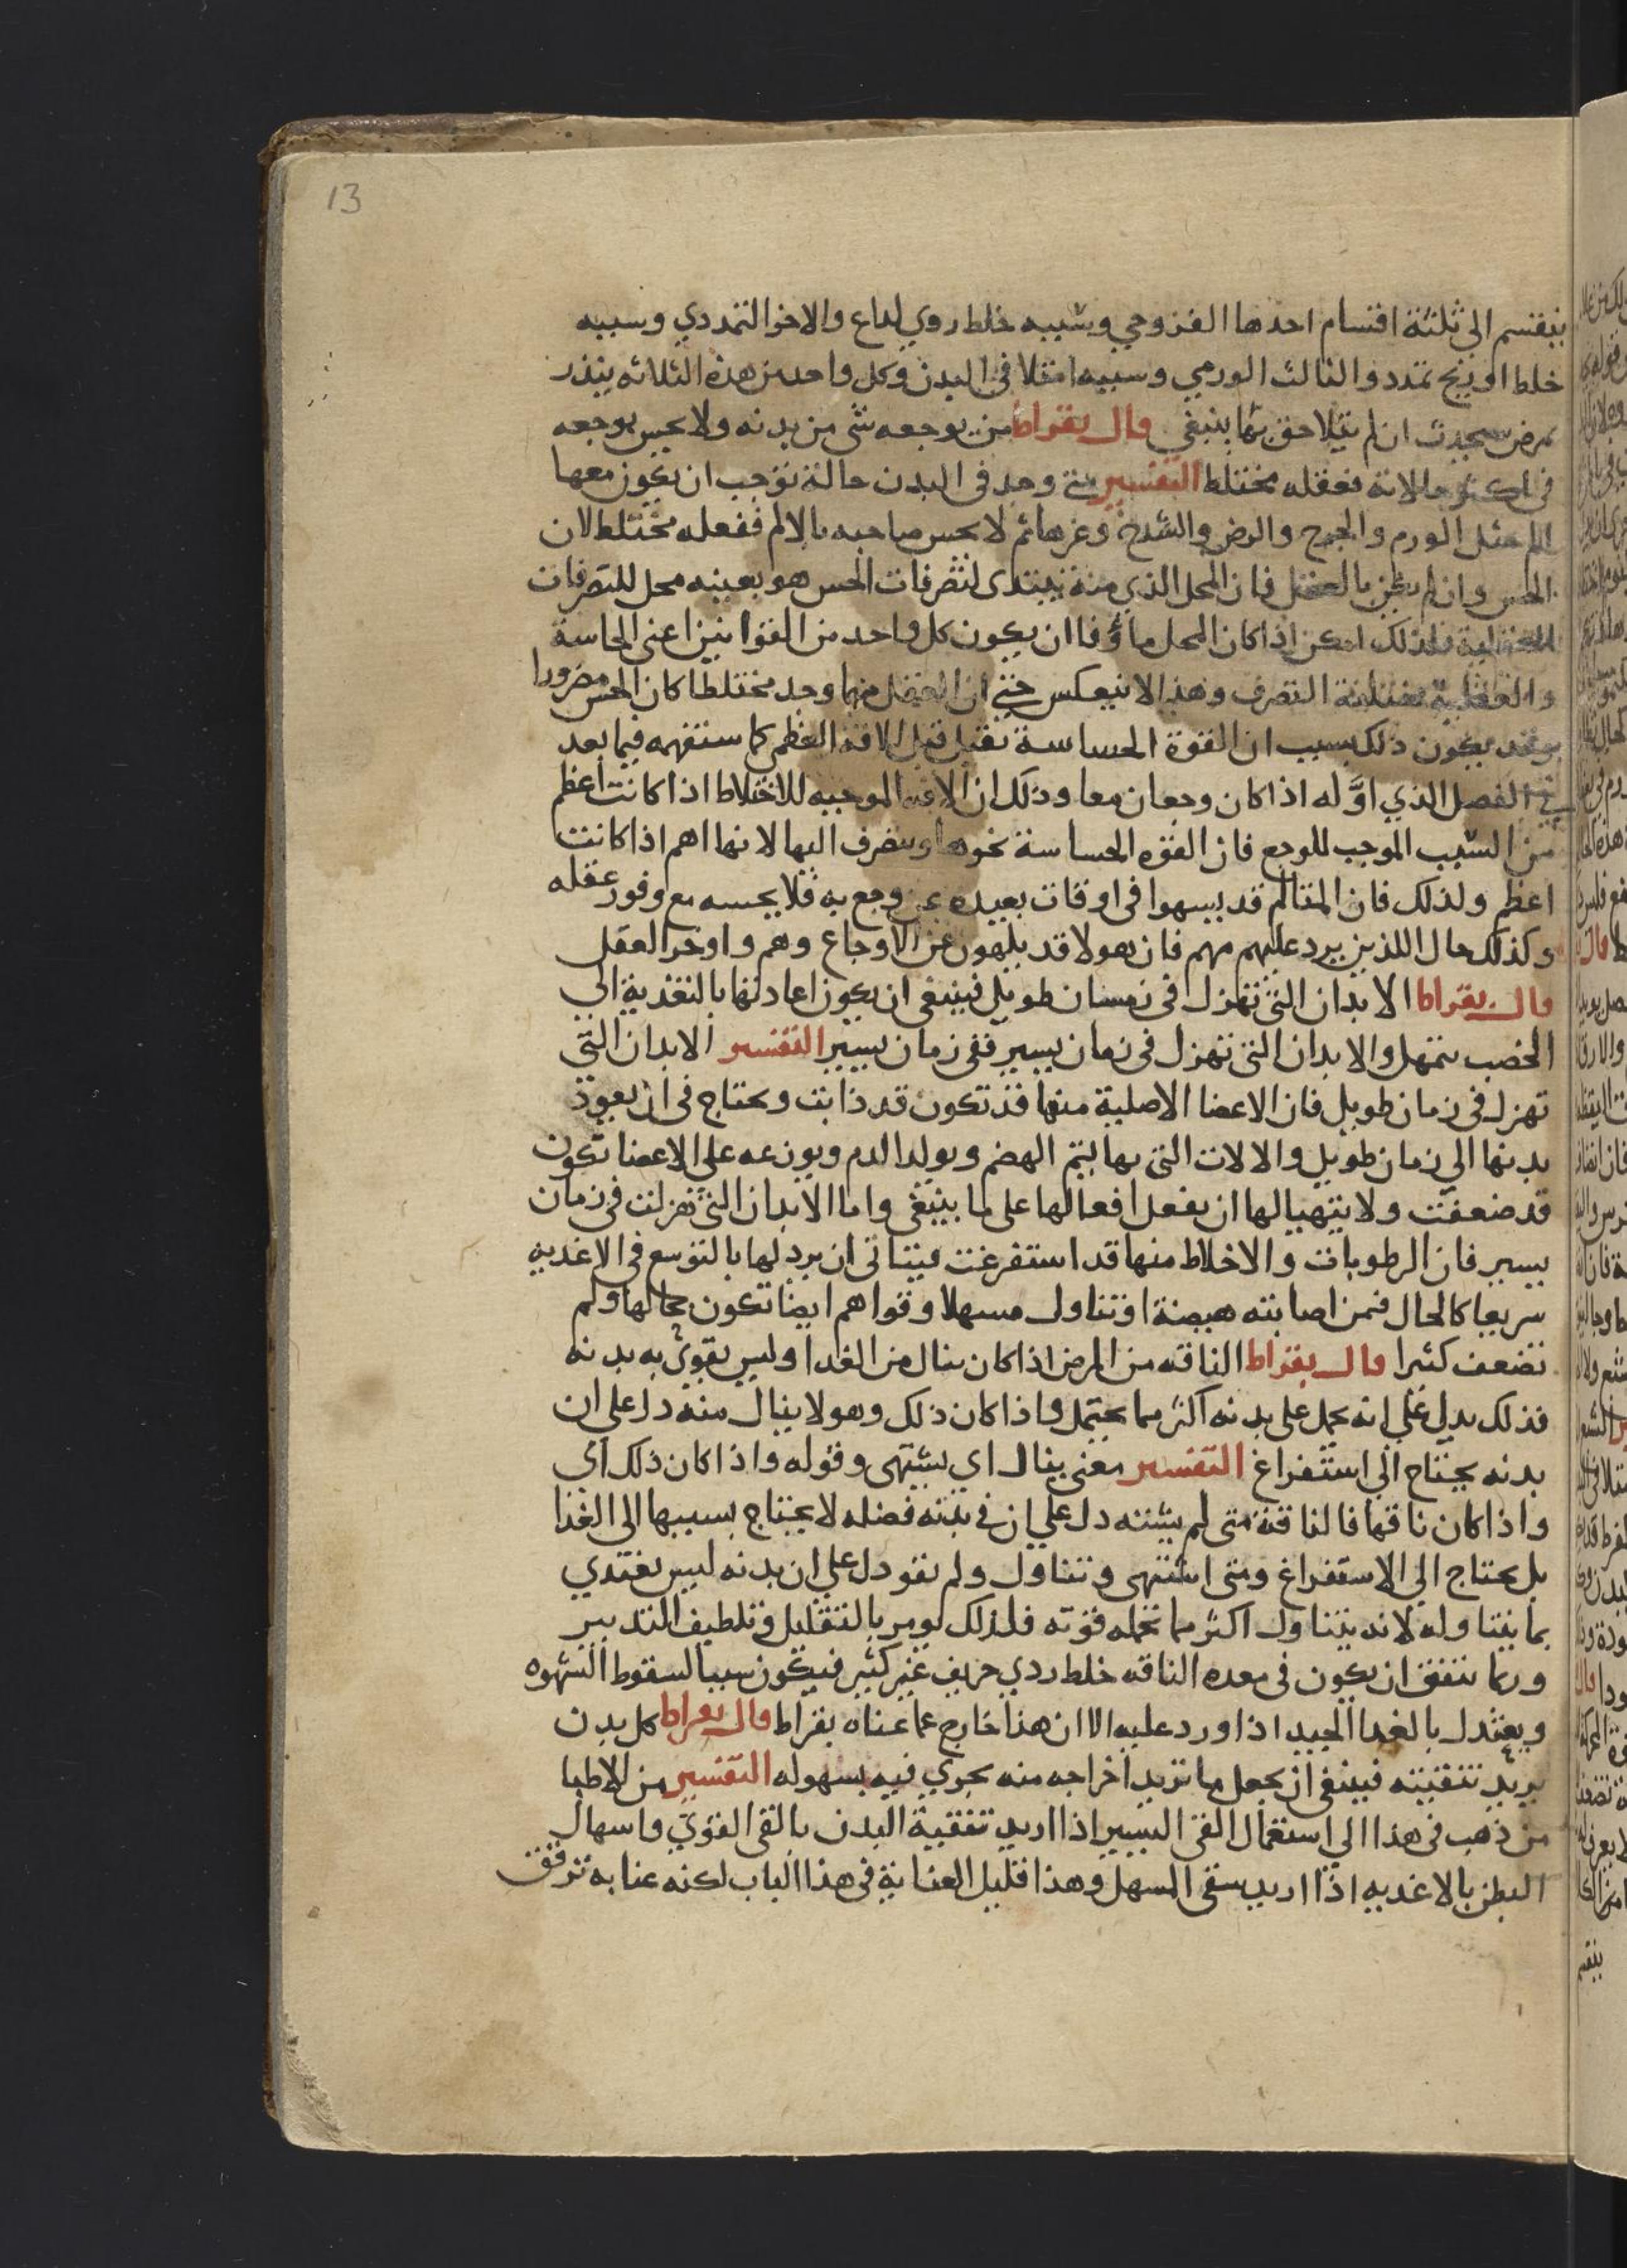 13
ينقسم الى ثلثة اقسام احدها القروحي وسببه خلط ردي لداع والاخر التمددي وسببه
خلط او ريح تمدد والثالث الورمي وسببه امتلا في البدن وكل واحد من هذه الثلاثه ينذر
بمرض سيحدث ان لم يتلاحق بما ينبغي قال بقراط من يوجعه شي من بدنه ولا يحس بوجعه
في اكثر حالاته فعقله مختلط التفسير متى وجد في البدن حالة توجب ان يكون معها
الم مثل الورم والجرح والرض والشدخ وغرها ثم لا يحس صاحبه بالالم ففعله مختلط لان
الحس وان لم يكن بالعقل فان المحل الذي منه يبتدى لتصرفات الحس هو بعينه محل للتصرفات
العقلية فلذلك امكن اذا كان المحل مأوفا ان يكون كل واحد من القوا نين اعنى الحاسة
والعقلية مختلفة التصرف وهذا لا ينعكس حتى ان العقل مهما وجد مختلطا كان الحس مضرورا
وقد يكون ذلك بسبب ان القوة الحساسة تقبل قبل الافة العظمى كما ستفهمه فيما بعد
في الفصل الذي اوله اذا كان وجعان معا وذلك ان الافة الموجبه للاختلاط اذا كانت اعظم
من السبب الموجب للوجع فان القوه الحساسة نحوها وتنصرف اليها لانها اهم اذا كانت
اعظم ولذلك فان المتالم قد يسهوا في اوقات بعيده عن وجع به فلا يحسه مع وفور عقله
وكذلك حال اللذين يرد عليهم مهم فان هولا قد يلهون عن الاوجاع وهم وا وخر العقل
قال بقراط الابدان التي تهزل في زمسان طويل فينبغي ان يكون اعادتها بالتغذية الى
الخصب بتمهل والابدان التي تهزل في زمان يسير ففي زمان يسير التفسير الابدان التي
تهزل في زمان طويل فان الاعضا الاصلية منها قد تكون قد ذابت ويحتاج في ان يعود
بدنها الي زمان طويل والالات التي بها يتم الهضم ويولد الدم ويوزعه على الاعضا تكون
قد ضعفت ولا يتهيا لها ان يفعل افعالها على ما ينبغي واما الابدان التي تهزلت في زمان
يسير فان الرطوبات والاخلاط منها قد استفرغت فيتاتى ان يرد لها بالتوسع في الاغديه
سريعا كالحال فمن اصابته هيضة او تناول مسهلا وقواهم ايضا تكون بحالها ولم
تضعف كثيرا قال بقراط الناقه من المرض اذا كان ينال من الغدا وليس يقوى به بدنه
فذلك يدل على انه يحمل على بدنه اكثر مما يحتمل واذا كان ذلك وهو لا ينال منه دل على ان
بدنه يحتاج الي استفراغ التفسير معنى ينال اي يشتهى وقوله واذا كان ذلك اي
واذا كان ناقها فالناقه متى لم يشته دل علي ان في بدنه فضله لا يحتاج بسببها الى الغذا
بل يحتاج الي الاستفراغ ومتى اشتهى وتناول ولم يقو دل علي ان بدنه ليس يغتدي
بما يتناوله لانه يتناول اكثر مما تحمله قوته فلذلك يومر بالتقليل وتلطيف التدبير
وربما يتفق ان يكون في معده الناقه خلط ردي حريف غير كثير فيكون سببا لسقوط الشهوه
ويعتدل بالغدا الجيد اذا ورد عليه الا ان هذا خارج عما عناه بقراط قال بقراط كل بدن
يريد تنقيته فينبغي ان يجعل ما تريد اخراجه منه يجري فيه بسهوله التفسير من الاطبا
من ذهب في هذا الي استعمال القى اليسير اذا اريد تنقية البدن بالقى القوي واسهال
البطن بالاغديه اذا اريد سقى المسهل وهذا قليل العناية في هذا الباب لكنه عنا به ترفق